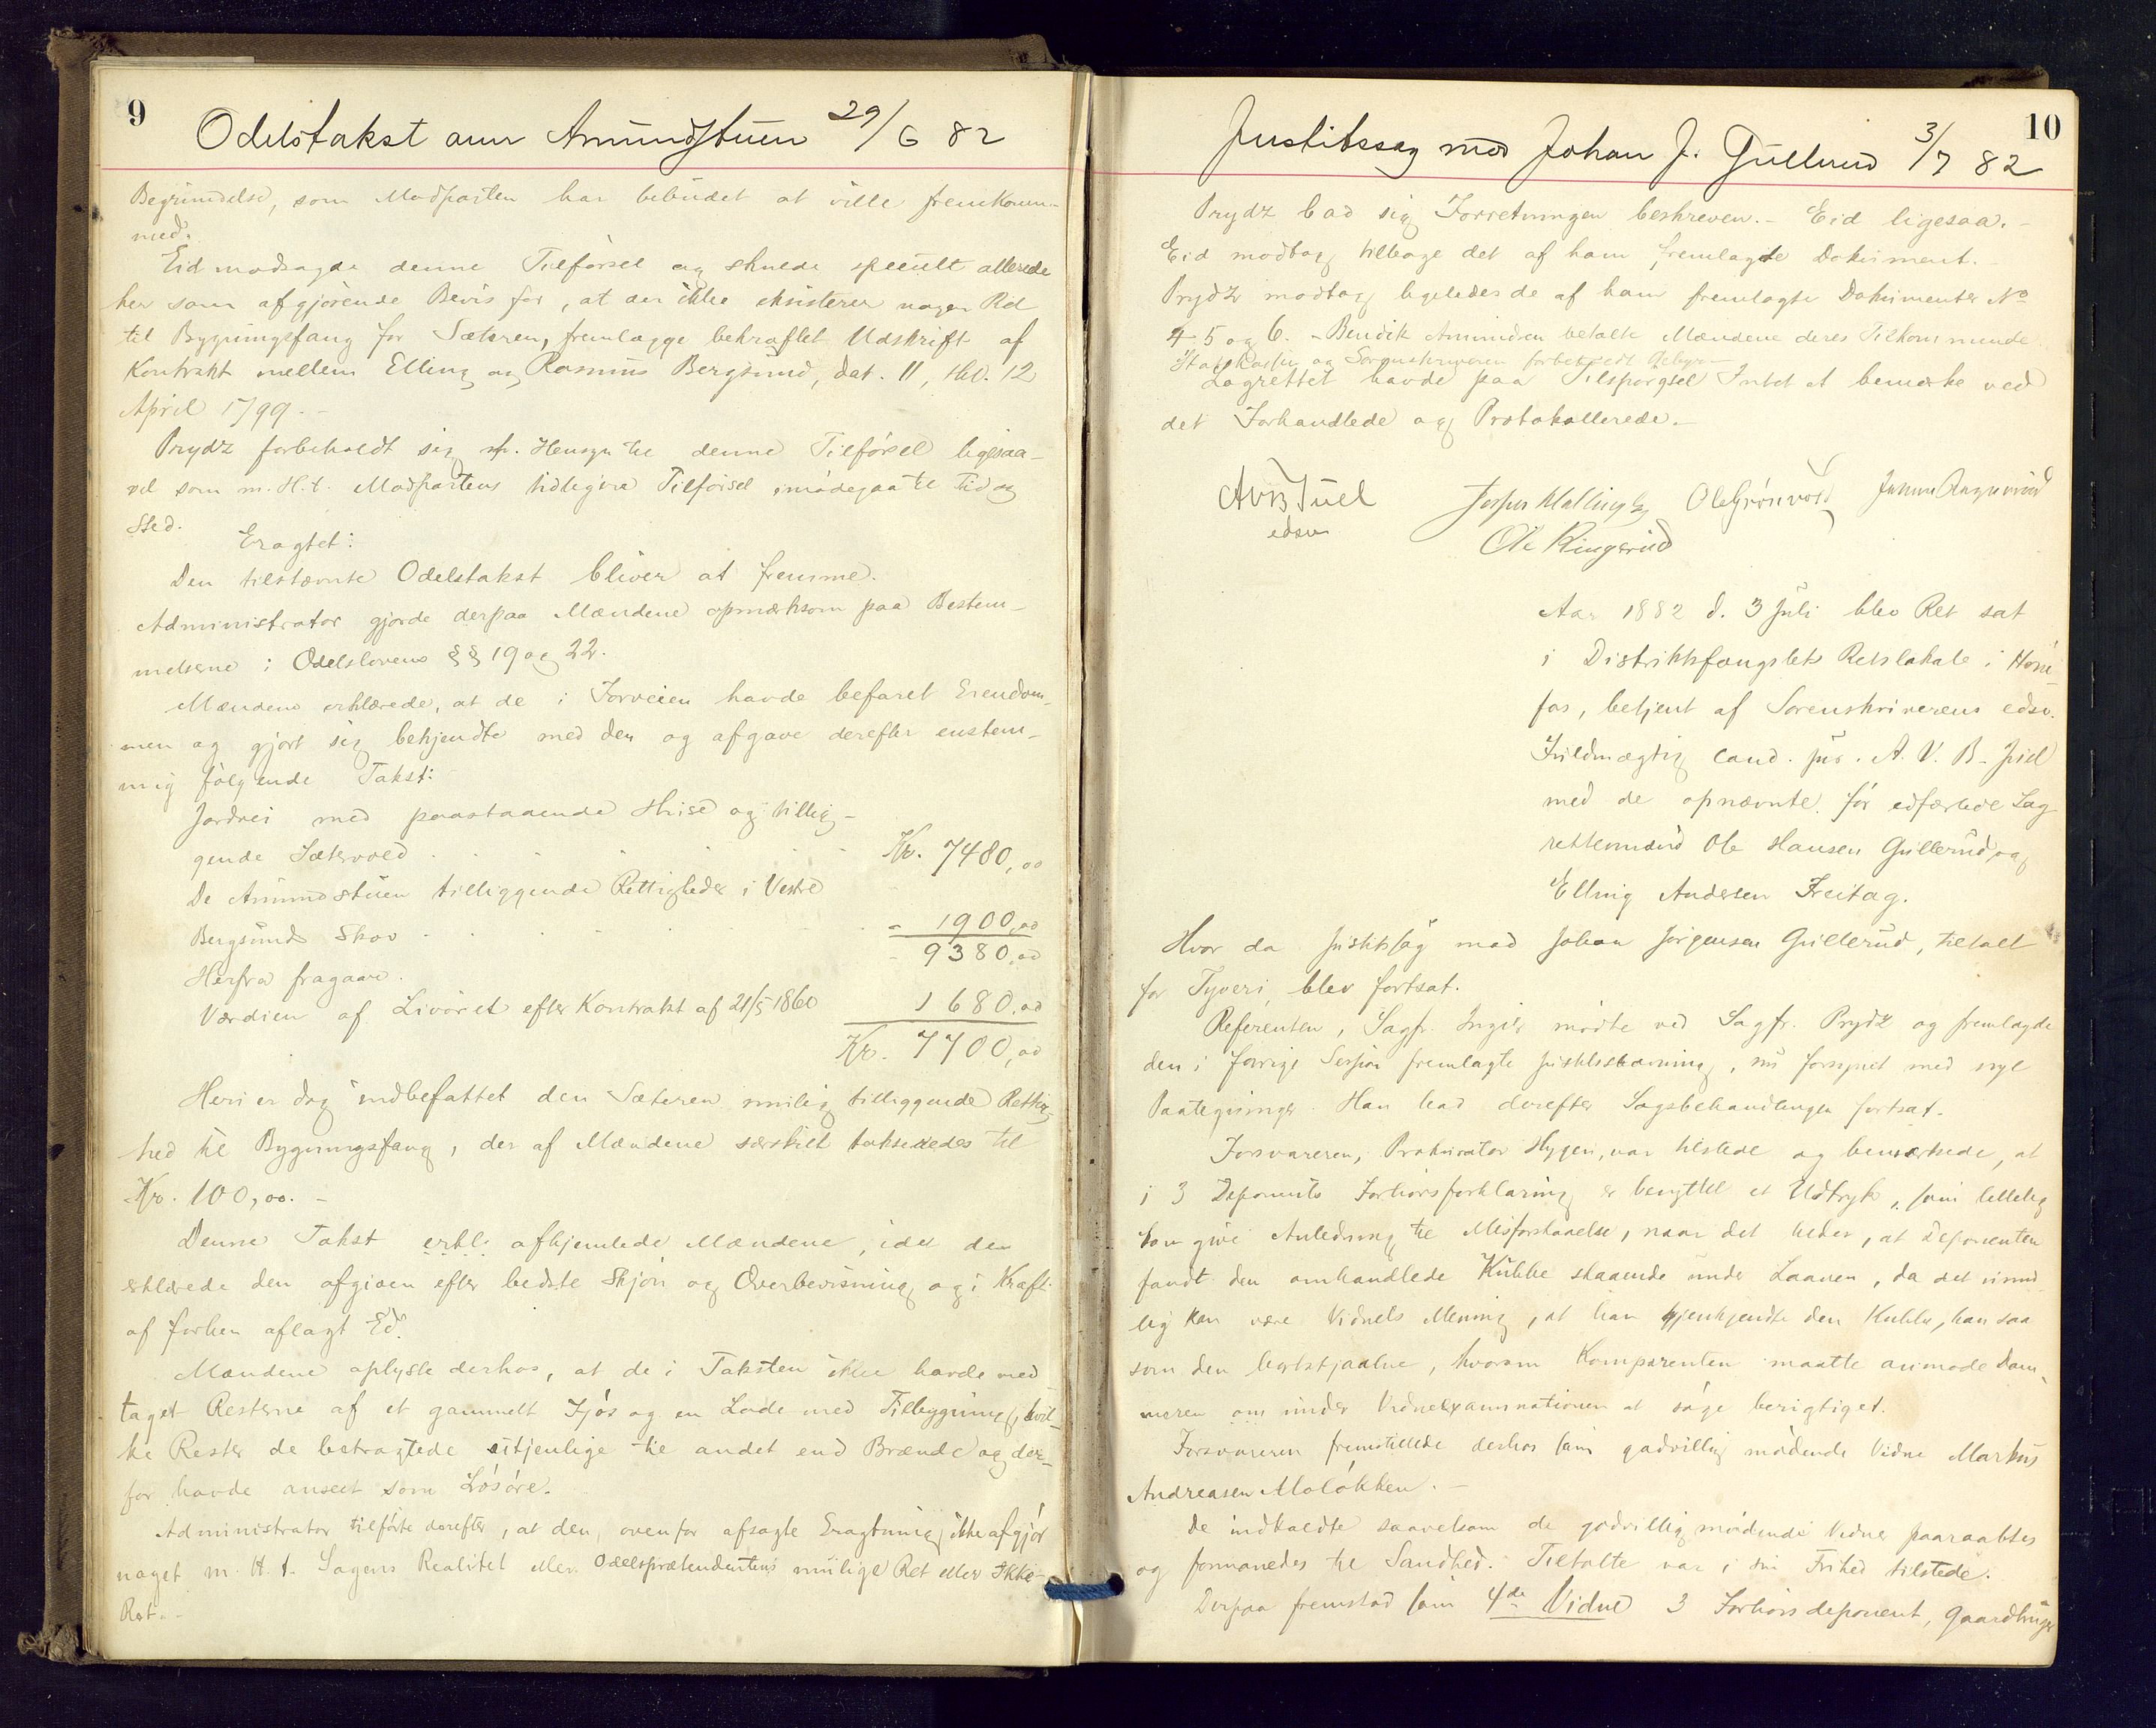 9
Odelstakst anm Amundstuen 29/6 82
Begrundelse, som Modparten har bebudet at ville fremkomme
med.
Eid modsagde denne Tilførsel og skulde specielt allerede
her som afgjørende Bevis for, at der ikke eksisterer nogen Ret
til Bygningsfang for Sæteren, fremlægge bekræftet Udskrift af
Kontrakt mellem Elling og Rasmus Bergsund, dat. 11, thl. 12
April 1799. -
Prydz forbeholdt sig m. Hensyn til denne Tilførsel ligesaa-
vel som m. H. t. Modpartens tidligere Tilførsel imødegaa til Tid og
Sted.
Eragtet:
Den tilstævnte Odelstakst bliver at fremme.
Administrator gjorde derpaa Mændene opmærksom paa Bestem-
melserne i Odelslovens §§ 19 og 22.
Mændene erklærede, at de i Forveien havde befaret Eiendom-
men og gjort sig bekjendte med den og afgave derefter enstem-
mig følgende Takst:
Jordvei med paastaaende Huse og tillig-
gende Sætervold . . . . . . Kr. 7480,00
De Amundstuen tilliggende Rettigheder i Vestre
Bergsunds Skov . . . . . - 1900,00
- 9380,00
Herfra fragaar.
Værdien af Livøret efter Kontrakt af 21/5 1860 1680,00
Kr. 7700,00
Heri er dog indbefattet den Sæteren mulig tilliggende Rettig-
hed til Bygningsfang, der af Mændene særskilt takseredes til
Kr. 100,00. -
Denne Takst erkl. afhjemlede Mændene, idet de
erklærede den afgiven efter bedste Skjøn og Overbevisning og i Kraft
af forhen aflagt Ed.
Mændene oplyste derhos, at de i Taksten ikke havde med-
taget Resterne af et gammelt Fjøs og en Lade med Tilbygning, hvil-
ke Rester de betragtede utjenlige til andet end Brænde og der-
for havde anseet som Løsøre.
Administrator tilførte derefter, at den ovenfor afsagte Eragtning ikke afgjør
noget m. H. t. Sagens Realitet eller Odelsprætendentens mulige Ret eller Ikke-
Ret. -
10
Justitssag mod Johan J. Gullerud 3/7 82
Prydz bad sig Forretningen beskreven. - Eid ligesaa. -
Eid modtog tilbage det af ham fremlagte Dokument. -
Prydz modtog ligeledes de af ham fremlagte Dokumenter No
4 5 og 6. - Bendik Amundsen betalte Mændene deres Tilkommende
og Sorenskriveren forbeholdt Gebyr -
Lagrettet havde paa Tilspørgsel Intet at bemærke ved
det Forhandlede og Protokollerede. -
AVB Juel
edsv
Ole Grønvold
Ole Ringerud
Aar 1882 d. 3 Juli blev Ret sat
i Distriktsfængslets Retslokale i Høne-
fos, betjent af Sorenskriverens edsv.
Fuldmægtig cand. jur. A. V. B. Juel
med de opnævnte før edfæstede Lag-
rettemænd Ole Hansen Gullerud og
Elling Andersen Freitag.
Hvor da Justitssag mod Johan Jørgensen Gullerud, tiltalt
for Tyveri, blev fortsat.
Referenten, Sagfr. Ingier mødte ved Sagfr. Prydz og fremlagde
den i forrige Session fremlagte Justitsstævning, nu forsynet med nye
Paategninger. Han bad derefter Sagsbehandlingen fortsat.
Forsvareren, Prokurator Hygen, var tilstede og bemærkede, at
i 3 Deponents Forhørsforklaring er benyttet et Udtryk, som lettelig
kan give Anledning til Misforstaaelse, naar det heder, at Deponenten
fandt den omhandlede Kubbe staaende under Laaven, da det umu-
lig kan være Vidnets Mening, at han gjenkjendte den Kubbe, han saa
som den bortstjaalne, hvorom Komparenten maatte anmode Dom-
meren om under Vidneexaminationen at søge berigtiget.
Forsvareren fremstillede derhos som godvillig mødende Vidne Markus
Andreasen Moløkken. -
De indkaldte saavelsom de godvillig mødende Vidner paaraabtes
og formanedes til Sandhed. Tiltalte var i sin Frihed tilstede.
Derpaa fremstod som 4de Vidne 3 Forhørsdeponent, Gaardbruger